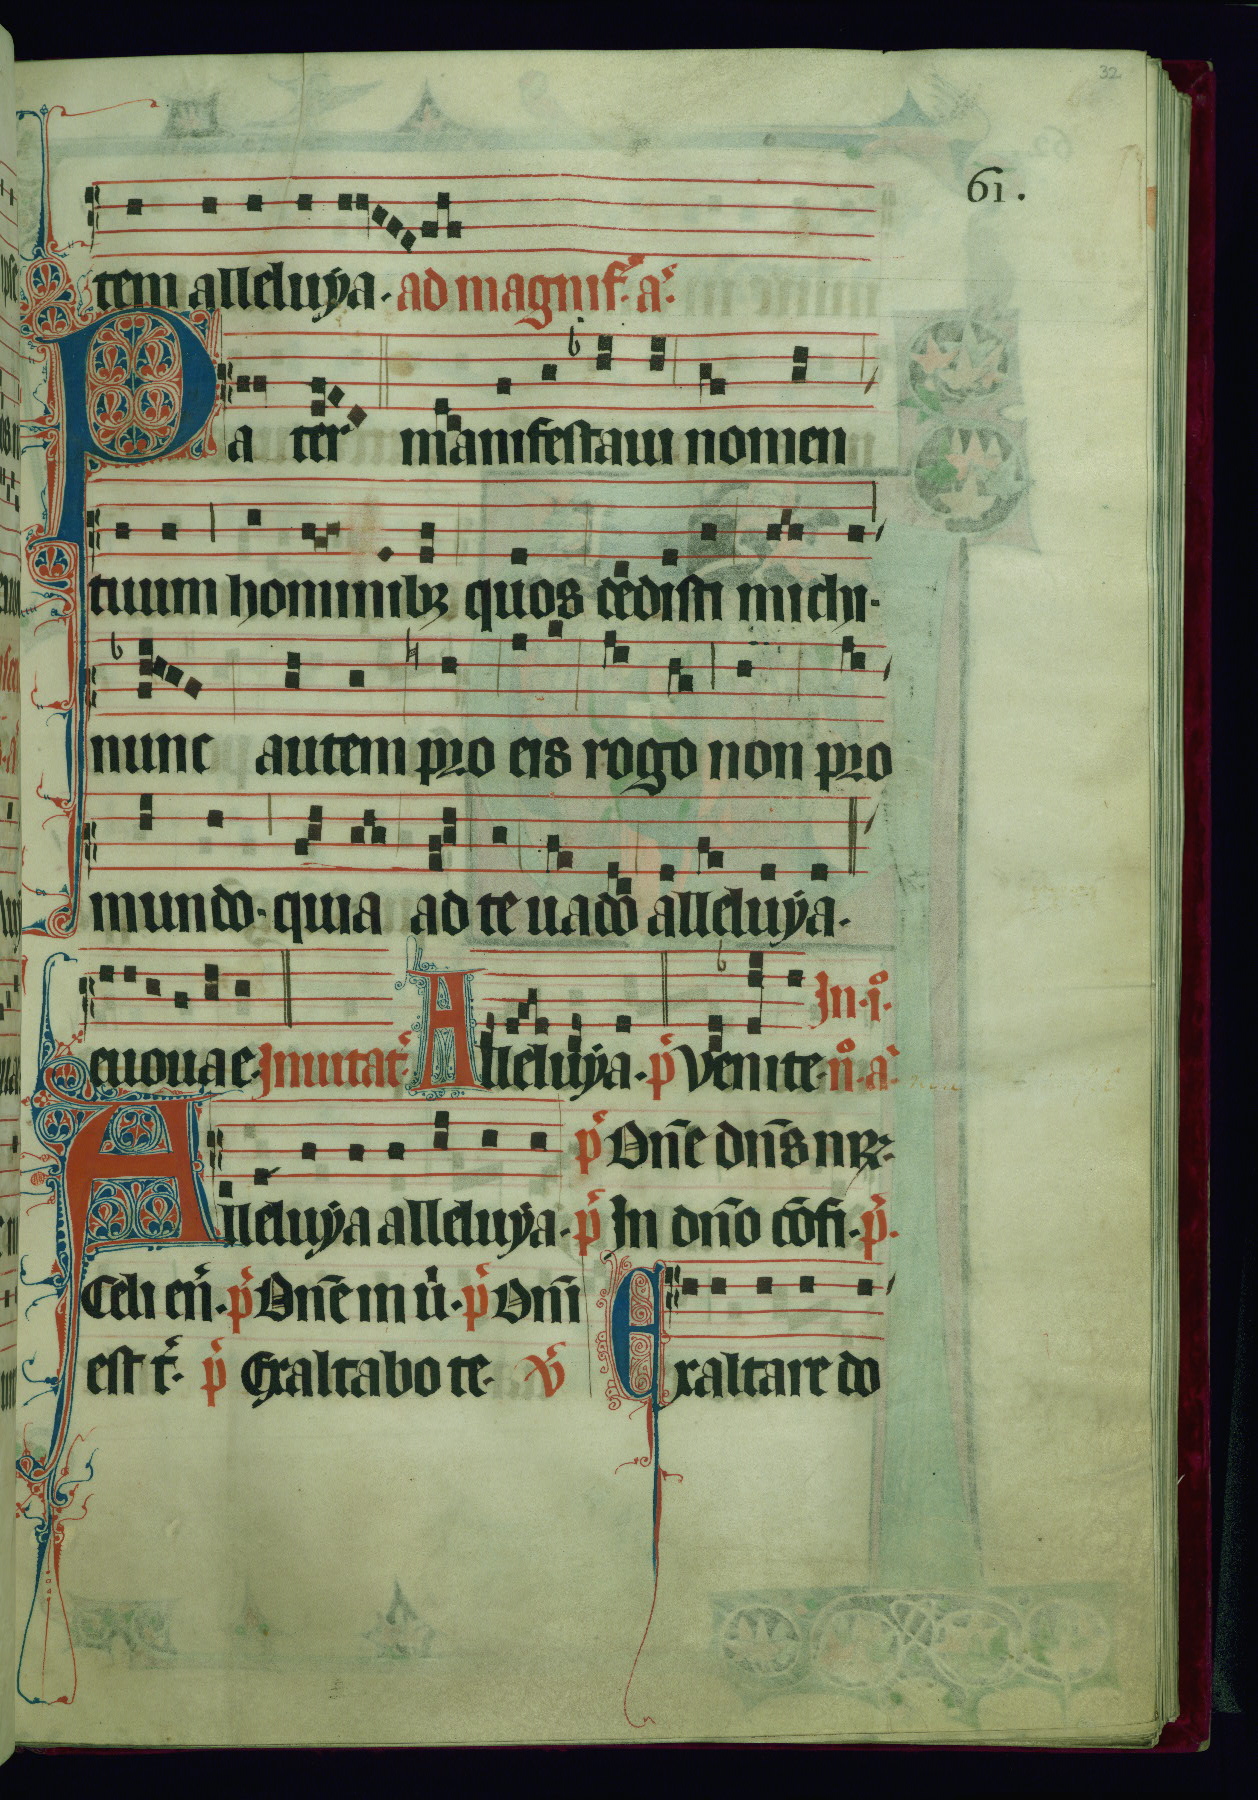 32
61.
tem alleluÿa. ad magnif. a.
Pater manifestaui nomen
tuum hominibꝫ quos dedisti michi.
nunc autem pro eis rogo non pro
mundo. quia ad te uado alleluÿa.
euouae. Inuitat. Alleluÿa. p̄ Venite. In. i. n̄. a.
p̄ Dn̄e dn̄s nr̄.
Alleluÿa alleluÿa. p̄ In dn̄o cōfi. p̄.
Celi en̄. p̄ Dn̄e in ū. p̄ Dn̄i
est t̄. p̄ Exaltabo te. v̄ Exaltare do